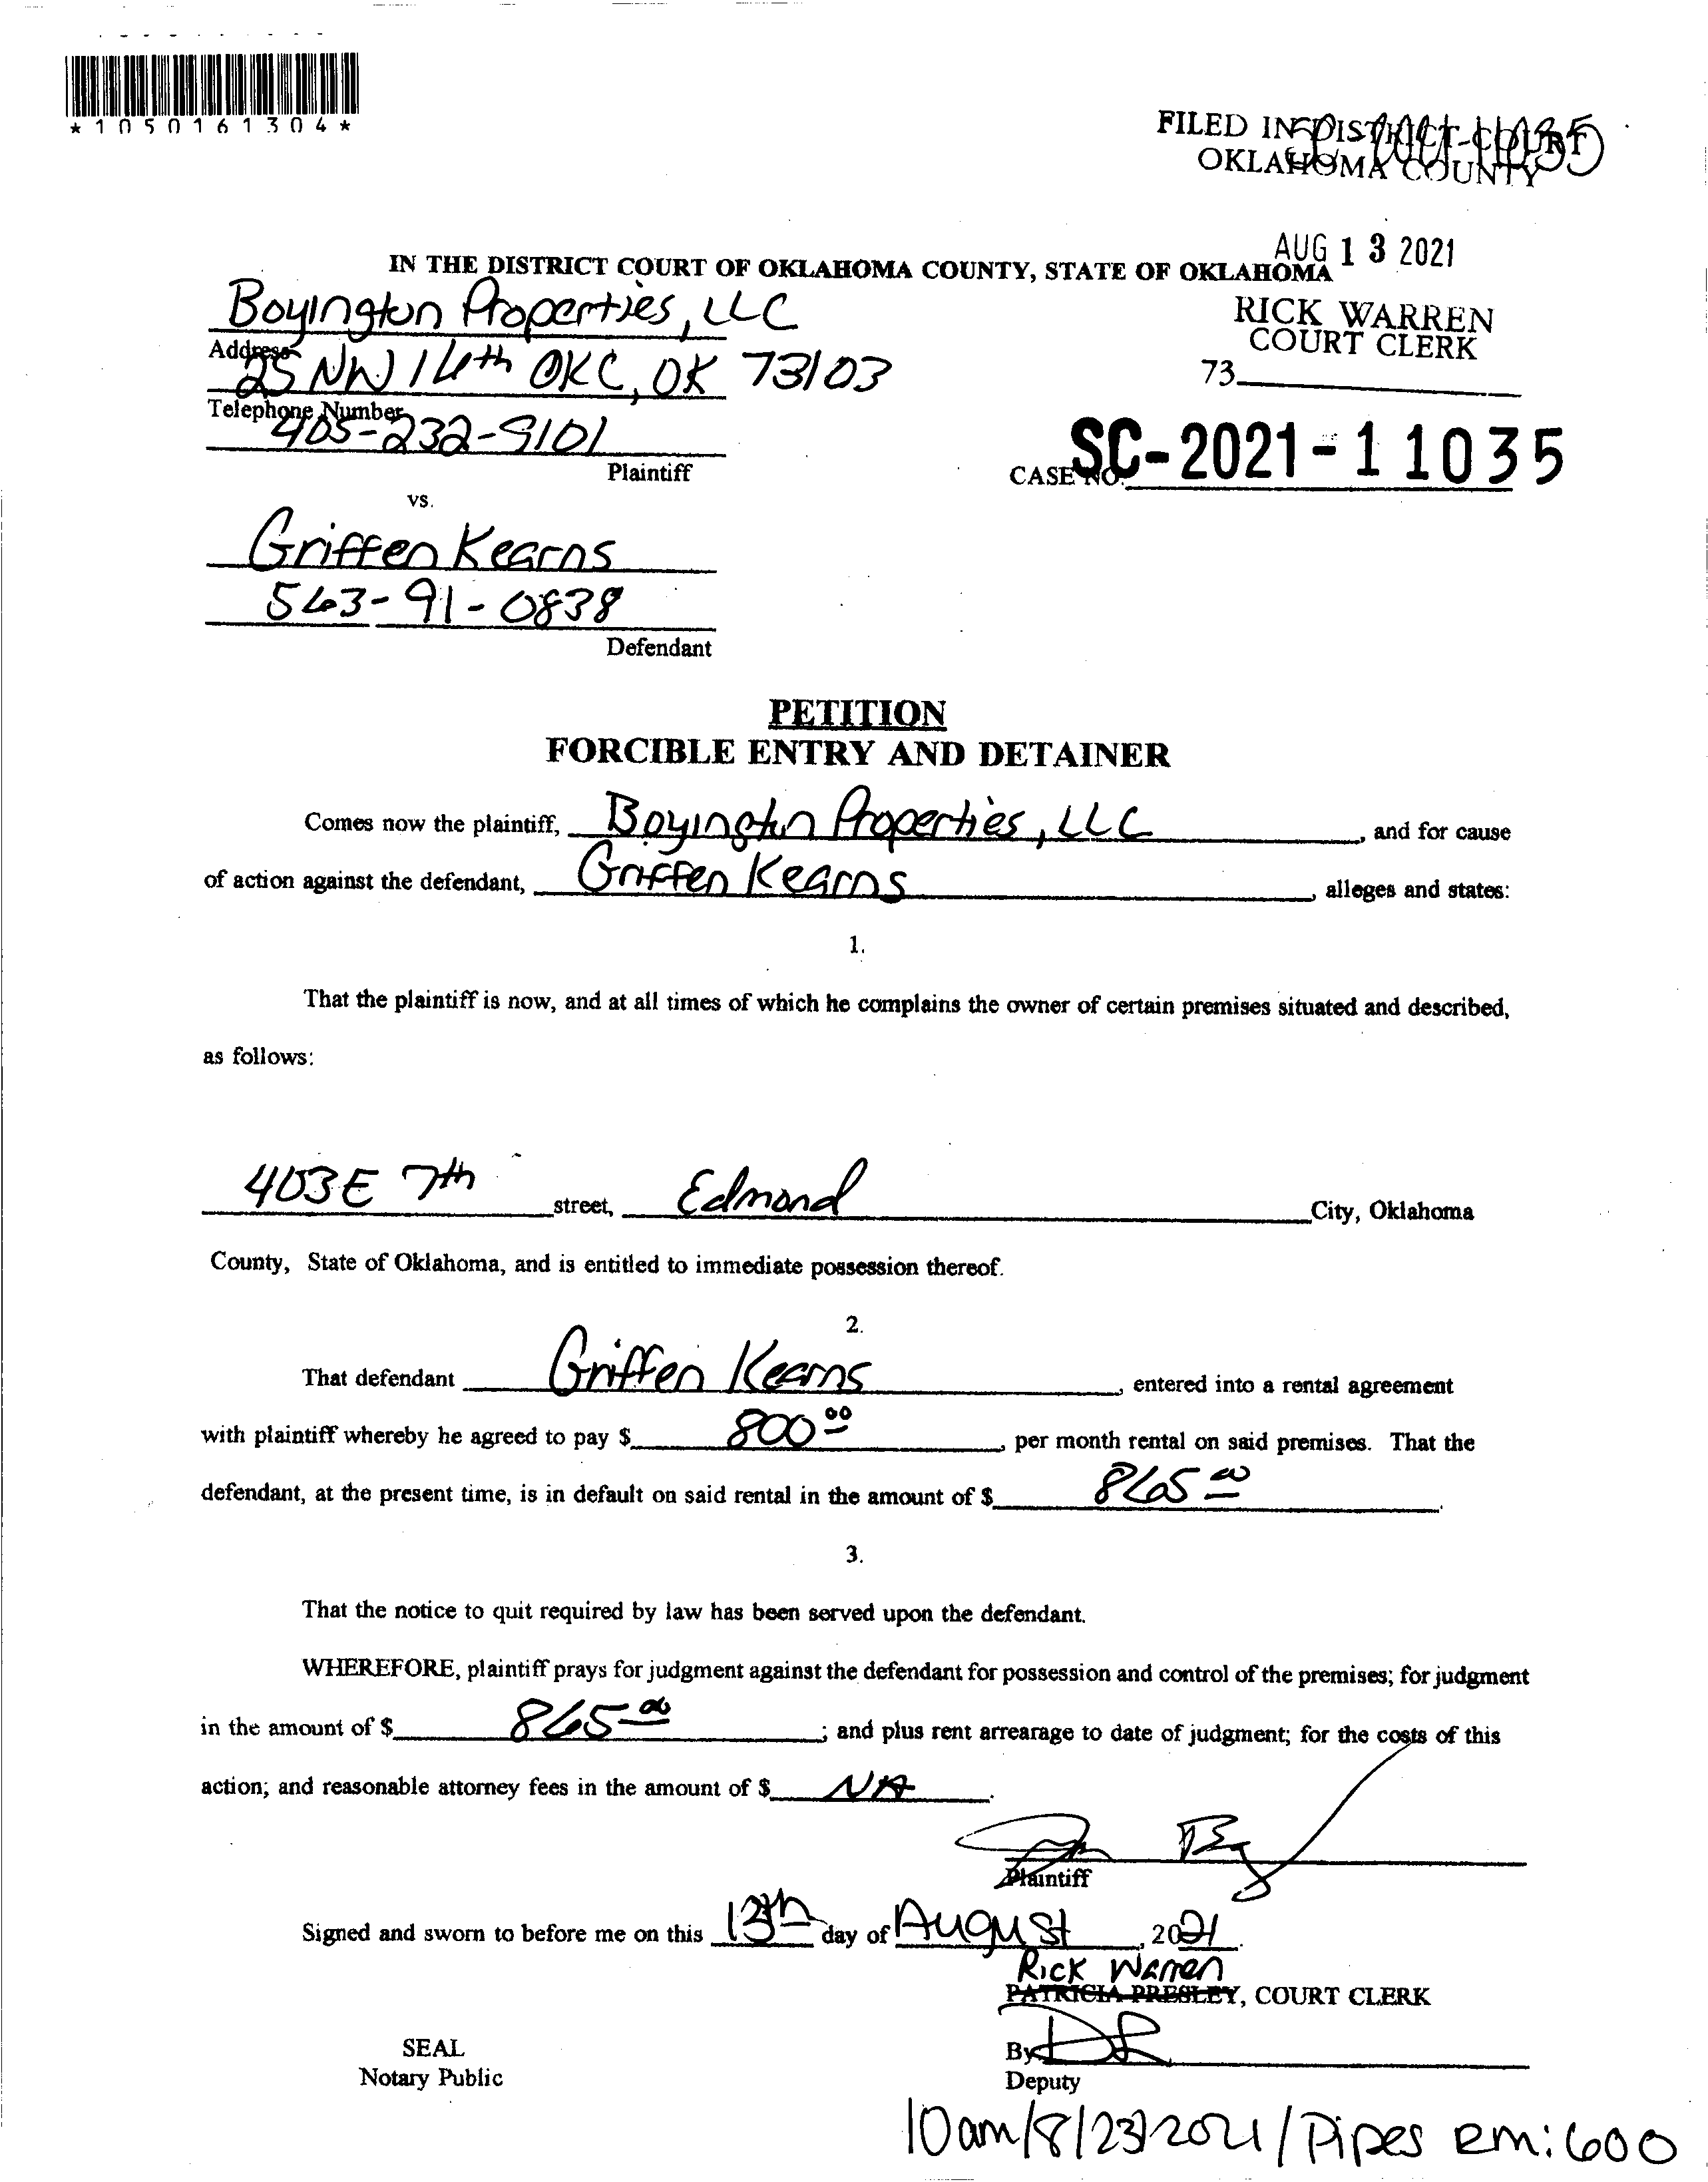 *1050161304*
FILED IN DISTRICT COURT
OKLAHOMA COUNTY
AUG 13 2021
IN THE DISTRICT COURT OF OKLAHOMA COUNTY, STATE OF OKLAHOMA
RICK WARREN
COURT CLERK
73
Boyington Properties, LLC
Address
25 NW 16th OKC, OK 73103
Telephone Number
405-232-9101
Plaintiff
CASE NO. SC-2021-11035
vs.
Griffen Kearns
563-91-0838
Defendant
PETITION
FORCIBLE ENTRY AND DETAINER
Comes now the plaintiff, Boyington Properties, LLC, and for cause
of action against the defendant, Griffen Kearns, alleges and states:
1.
That the plaintiff is now, and at all times of which he complains the owner of certain premises situated and described,
as follows:
403 E 7th street, Edmond City, Oklahoma
County, State of Oklahoma, and is entitled to immediate possession thereof.
2.
That defendant Griffen Kearns, entered into a rental agreement
with plaintiff whereby he agreed to pay $ 800.00, per month rental on said premises. That the
defendant, at the present time, is in default on said rental in the amount of $ 865.00.
3.
That the notice to quit required by law has been served upon the defendant.
WHEREFORE, plaintiff prays for judgment against the defendant for possession and control of the premises; for judgment
in the amount of $ 865.00; and plus rent arrearage to date of judgment; for the costs of this
action; and reasonable attorney fees in the amount of $ NA.
Plaintiff
Signed and sworn to before me on this 13th day of August, 2021.
Rick Warren
PATRICIA PRESLEY, COURT CLERK
SEAL
Notary Public
By
Deputy
10am/8/23/2021/Pipes rm:600